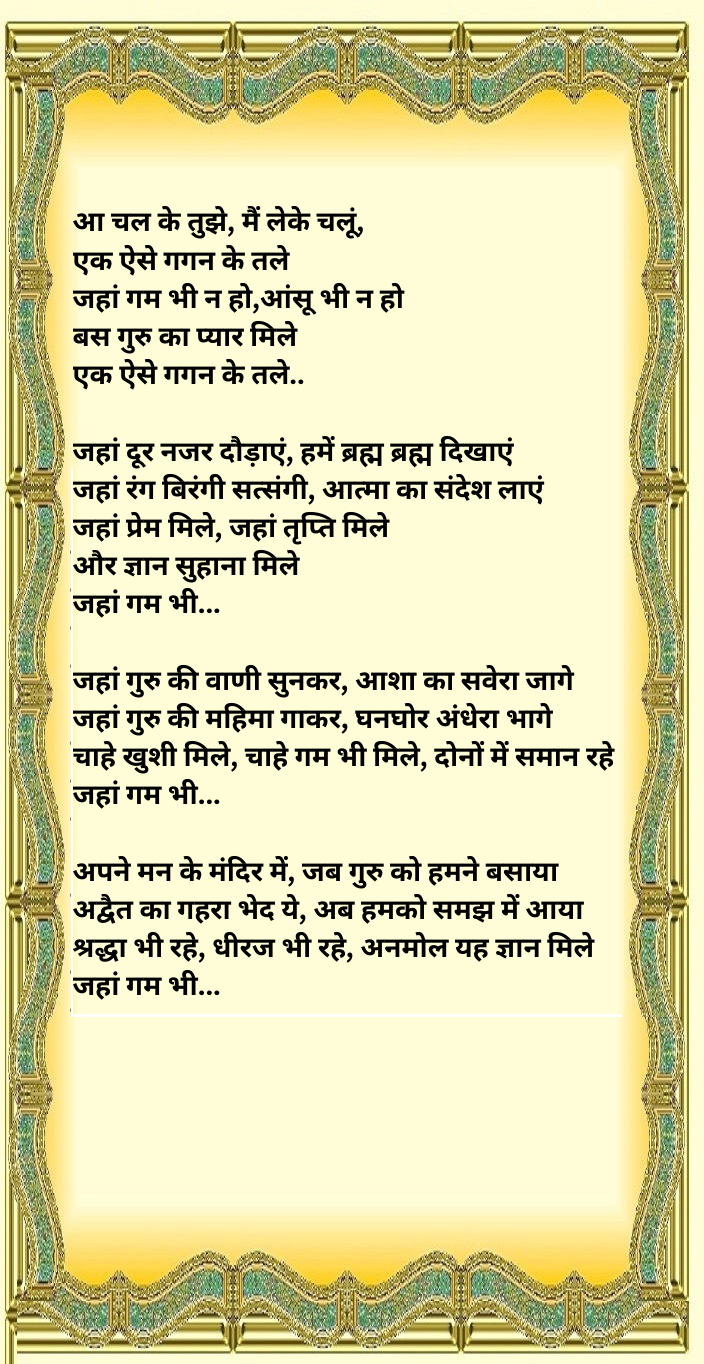 आ चल के तुझे, मैं लेके चलूं,
एक ऐसे गगन के तले
जहां गम भी न हो,आंसू भी न हो
बस गुरु का प्यार मिले
एक ऐसे गगन के तले..
जहां दूर नजर दौड़ाएं, हमें ब्रह्म ब्रह्म दिखाएं
जहां रंग बिरंगी सत्संगी, आत्मा का संदेश लाएं
जहां प्रेम मिले, जहां तृप्ति मिले
और ज्ञान सुहाना मिले
जहां गम भी...
जहां गुरु की वाणी सुनकर, आशा का सवेरा जागे
जहां गुरु की महिमा गाकर, घनघोर अंधेरा भागे
चाहे खुशी मिले, चाहे गम भी मिले, दोनों में समान रहे
जहां गम भी...
अपने मन के मंदिर में, जब गुरु को हमने बसाया
अद्वैत का गहरा भेद ये, अब हमको समझ में आया
श्रद्धा भी रहे, धीरज भी रहे, अनमोल यह ज्ञान मिले
जहां गम भी...